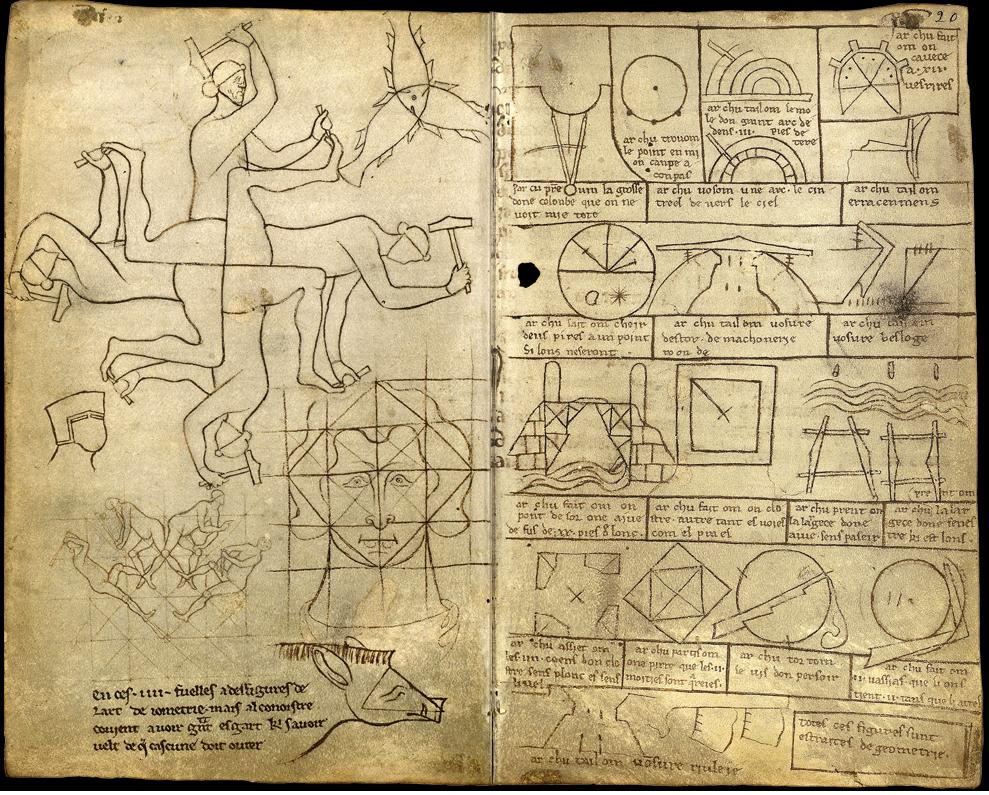 en ces .iiii. fuelles a des figures de
lart de iometrie. mais al conoistre
covient avoir grant esgart ki savoir
velt de qi cascune doit ovrer
20
ar chu fait
om on
cavece
a .xii.
vesrires
ar chu trouom
le point en mi
on canpe a
conpas
ar chu tail om le mo
le don grant arc de
dens .iii. pies de
tere
par cu prent om la grosse
done colonbe que on ne
voit mie tote
ar chu vosom une arc. le cin
treel de vers le ciel
ar chu tail om
erracemens
ar chu fait om cheir
deus pires a un point
si lons ne seront
ar chu tail om vosure
destor. de machonerie
roonde
ar chu tail om
vosure besloge
ar chu fait om on
pont de sor one aiue
de fus de .xx. pies d lonc
ar chu fait om on clo
stre. autre tant es voies
com el prael
ar chu prent om
la largece done
aive. sens paseir
ar chu prent om
la largece done fenes
tre ki est lons
ar chu assiet om
les .iiii. coens don clo
stre sens plonc et sens
livel
ar chu partis om
one pirre que les .ii.
moities sont qareies
ar chu tor torn
le vis don persoir
ar chu fait om
.ii. vassias que li ons
tient .ii. tans que li atres
ar chu tail om vosure riuleie
totes ces figures sunt
estraites de geometrie.